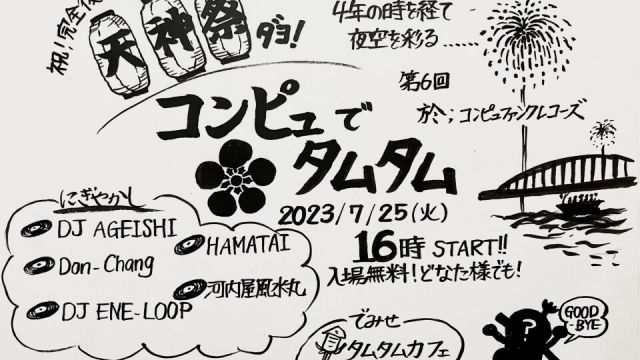 祝！完全復
天神祭
ダヨ！
4年の時を経て
夜空を彩る......
第6回
コンピュで
タムタム
於；コンピュファンクレコーズ
2023/7/25(火)
16時 START!!
入場無料！どなた様でも！
にぎやかし
DJ AGEISHI
HAMATAI
Don-Chang
河内屋風水丸
DJ ENE-LOOP
でみせ
タムタムカフェ
?
GOOD
-BYE